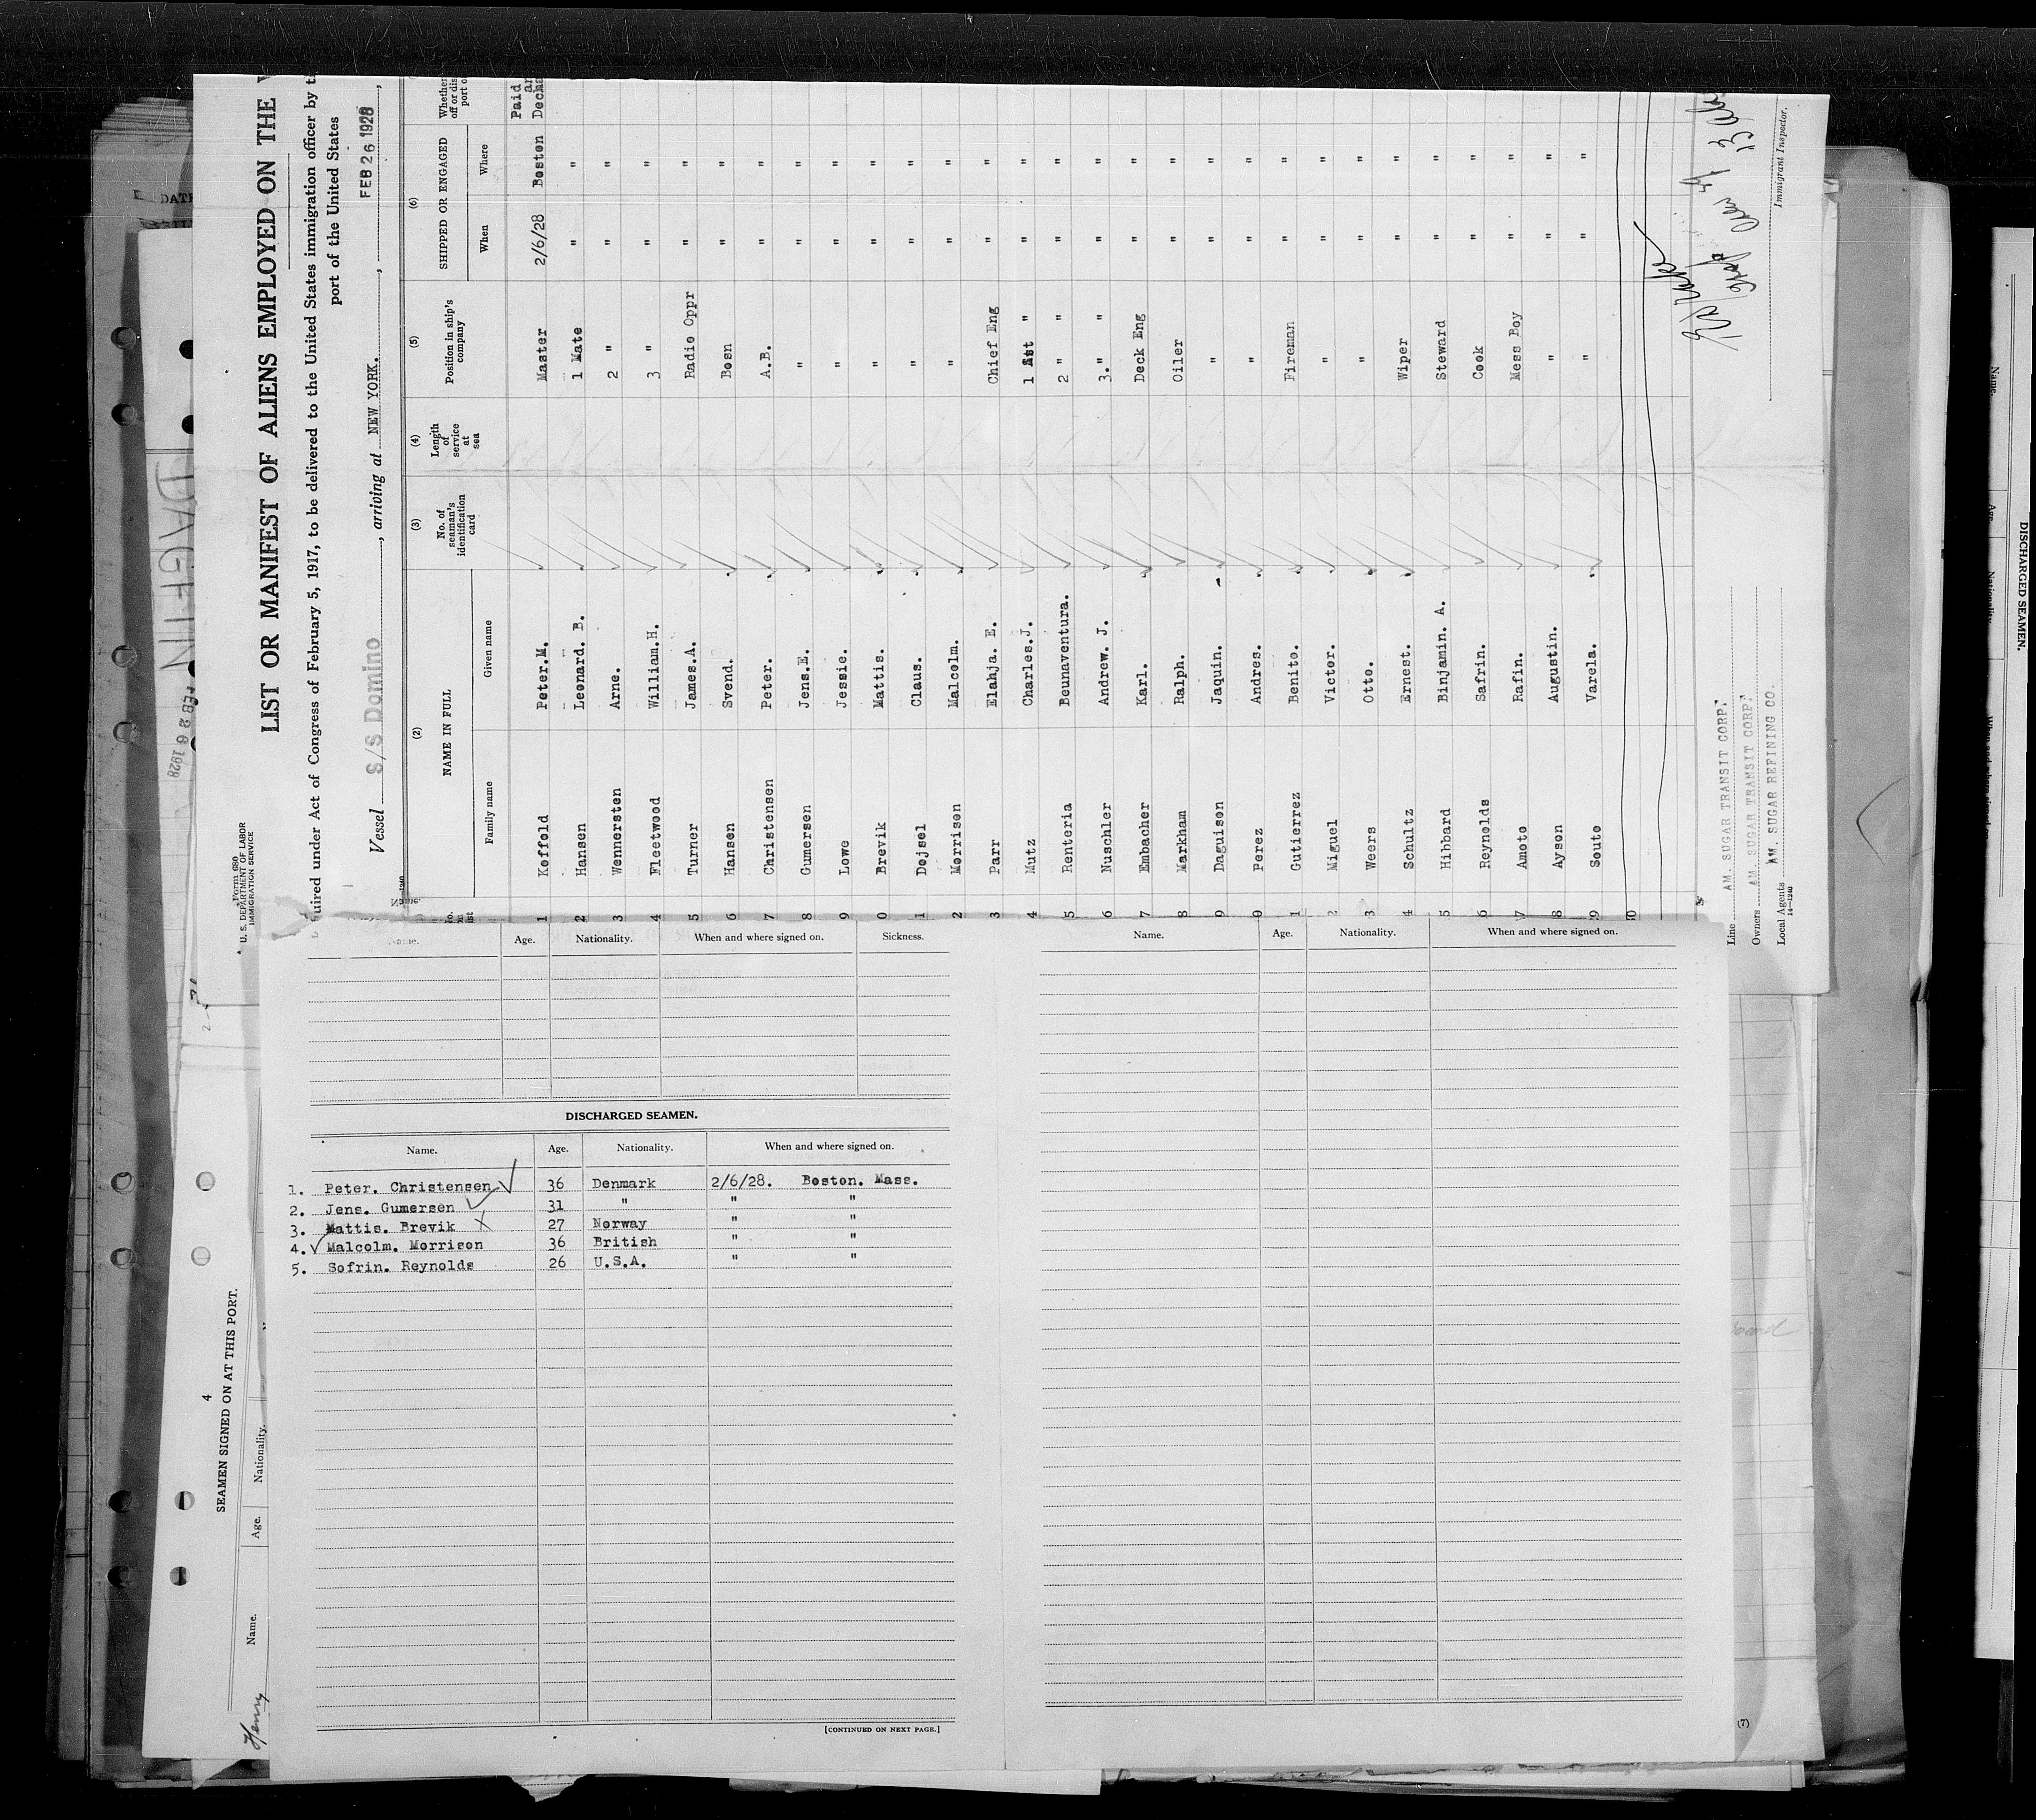 Form 680
U. S. DEPARTMENT OF LABOR
IMMIGRATION SERVICE
LIST OR MANIFEST OF ALIENS EMPLOYED ON THE
uired under Act of Congress of February 5, 1917, to be delivered to the United States immigration officer by t
port of the United States
Vessel S/S Domino, arriving at NEW YORK., FEB 26 1928,
(2) (3) (4) (5) (6)
NAME IN FULL No. of seaman's identification card Length of service at sea Position in ship's company SHIPPED OR ENGAGED Whether
off or dis
port o
Family name Given name When Where
Paid
Decha
1 Koffold Peter.M. Master 2/6/28 Boston
2 Hansen Leonard. B. 1 Mate " "
3 Wennersten Arne. 2 " " "
4 Fleetwood William.H. 3 " " "
5 Turner James.A. Radio Oppr " "
6 Hansen Svend. Bosn " "
7 Christensen Peter. A.B. " "
8 Gumersen Jens.E. " " "
9 Lowe Jessie. " " "
0 Brevik Mattis. " " "
1 Dojsel Claus. " " "
2 Morrison Malcolm. " " "
3 Parr Elahja. E. Chief Eng " "
4 Mutz Charles.J. 1 Ast " " "
5 Renteria Beunaventura. 2 " " " "
6 Nuschler Andrew. J. 3." " " "
7 Embacher Karl. Deck Eng " "
8 Markham Ralph. Oiler " "
9 Daguison Jaquin. " " "
0 Perez Andres. " " "
1 Gutierrez Benito. Fireman " "
2 Miguel Victor. " " "
3 Weers Otto. " " "
4 Schultz Ernest. Wiper " "
5 Hibbard Binjamin. A. Steward " "
6 Reynolds Safrin. Cook " "
7 Amoto Rafin. Mess Boy " "
8 Ayson Augustin. " " "
9 Souto Varela. " " "
0
Line AM. SUGAR TRANSIT CORP.
Owners AM. SUGAR TRANSIT CORP.
Local Agents AM. SUGAR REFINING CO.
14—1240
Immigrant Inspector.
Name. Age. Nationality. When and where signed on. Sickness.
DISCHARGED SEAMEN.
Name. Age. Nationality. When and where signed on.
1. Peter. Christensen 36 Denmark 2/6/28. Boston. Mass.
2. Jens. Gumersen 31 " " "
3. Mattis. Brevik 27 Norway " "
4. Malcolm. Morrison 36 British " "
5. Sofrin. Reynolds 26 U.S.A. " "
[CONTINUED ON NEXT PAGE.]
Name. Age. Nationality. When and where signed on.
(7)
4
SEAMEN SIGNED ON AT THIS PORT.
Name. Age. Nationality.
Henry
DAGFIN
FEB 26 1928
DISCHARGED SEAMEN.
Name. Age. Nationality. When and where signed